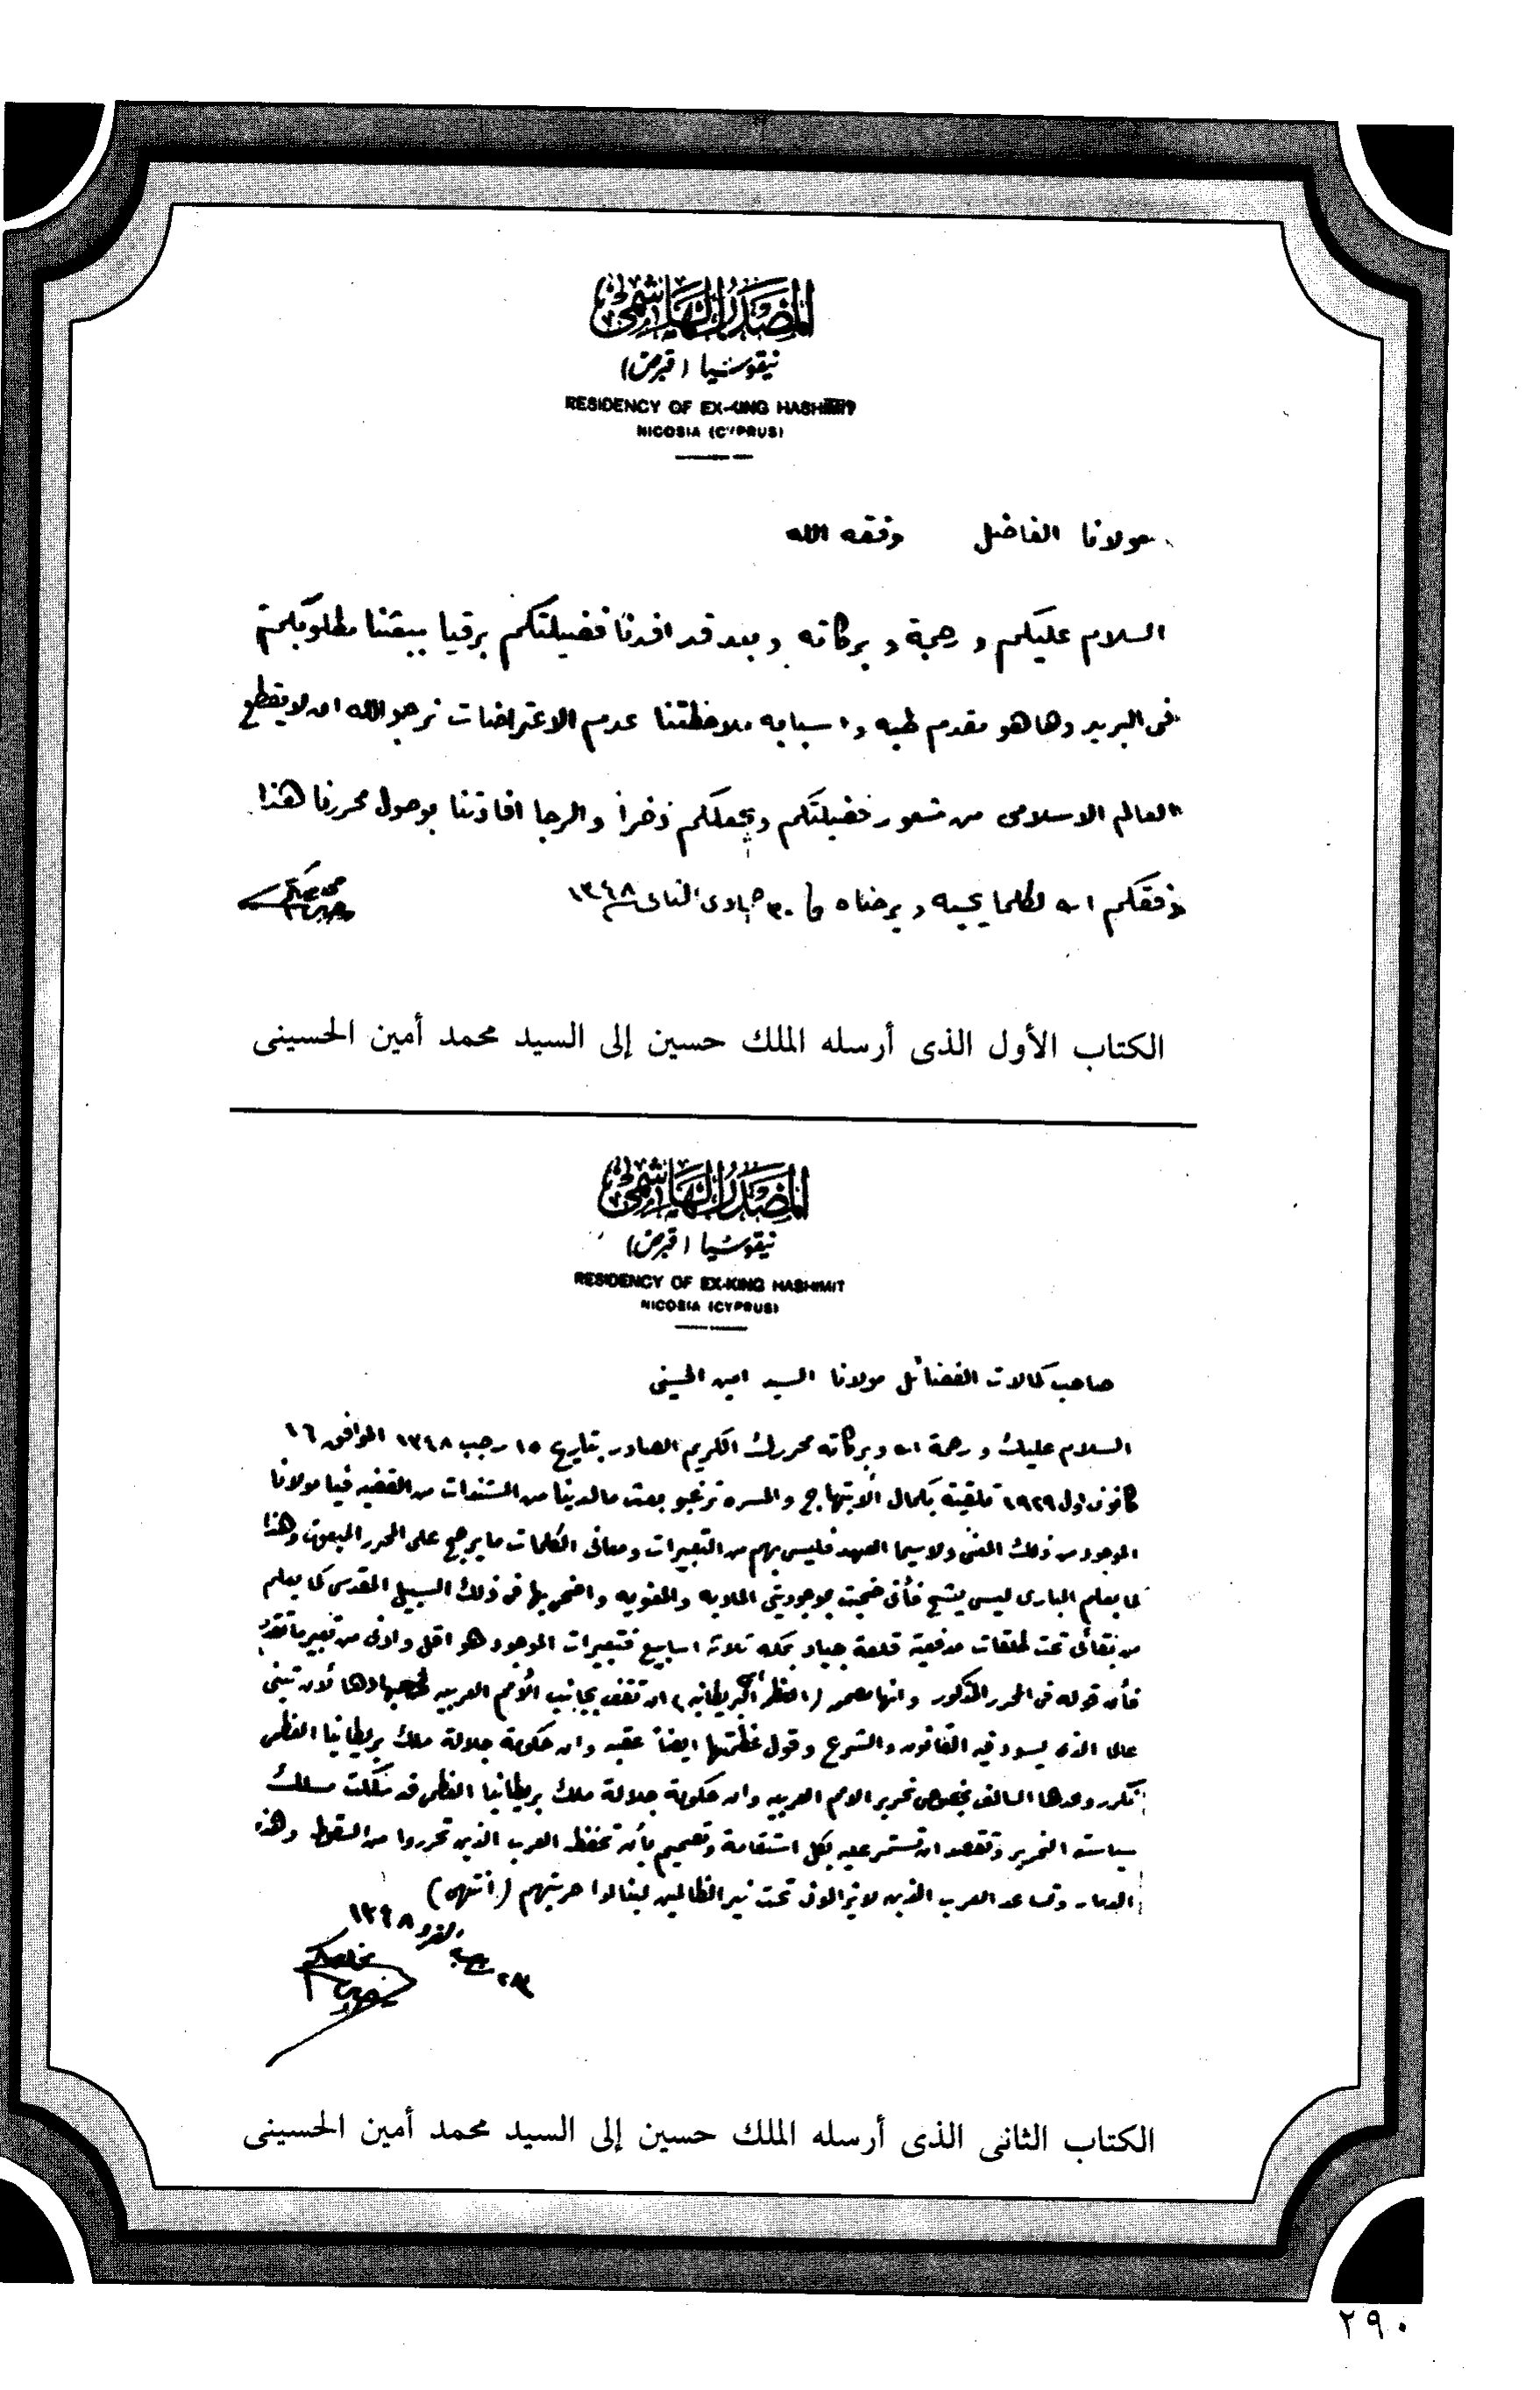 المصدر الهاشمي
نيقوسيا (قبرص)
RESIDENCY OF EX-KING HASHIMIT
NICOSIA (CYPRUS)
مولانا الفاضل وفقه الله
السلام عليكم ورحمة وبركاته وبعد قد افدنا فضيلتكم برقيا ببعثنا مطلوبكم
فى البريد وها هو مقدم طيه واسبابه ملاحظتنا عدم الاعتراضات نرجو الله ان لا يقطع
العالم الاسلامى من شعور فضيلتكم ويجعلكم ذخرا والرجا افادتنا بوصول محررنا هذا
وفقكم الله لكلما يحبه ويرضاه فى ٣٠ جمادى الثانى ١٣٤٨
الكتاب الأول الذى أرسله الملك حسين إلى السيد محمد أمين الحسينى
المصدر الهاشمي
نيقوسيا (قبرص)
RESIDENCY OF EX-KING HASHIMIT
NICOSIA (CYPRUS)
صاحب كمالات الفضائل مولانا السيد امين الحسينى
السلام عليك ورحمة الله وبركاته محررك الكريم الصادر بتاريخ ١٥ رجب ١٣٤٨ الموافق ١٦
كانون اول ١٩٢٩ تلقيته بكمال الابتهاج والمسره ترغبو بعث مالدينا من المستندات من القضيه فيا مولانا
الموجود من ذلك الغنى ولا سيما العهد فليس بهم من التعبيرات ومعانى الكلمات ما يرجح على المحرر المبعوث وهذا
كما يعلم البارى ليس بشح فأنى ضحيت بموجوديتى الماديه والمعنويه واضحى بها فى ذلك السبيل المقدس كما يعلم
من بقائى تحت طلقات مدفعية قلعة جياد بمكه ثلاثة اسابيع فتعبيرات الموجود هو اقل وادنى من تعبير ما تقدم
فأن قوله فى المحرر المذكور وانها مصممه (العظمى البريطانيه) ان تقف بجانب الأمم العربيه لجهادها لأن تبنى
عالما الذى يسود فيه القانون والشرع وقول عظمتها ايضا عقبه وان حكومة جلالة ملك بريطانيا العظمى
تكرر وعدها السالف بخصوص تحرير الامم العربيه وان حكومة جلالة ملك بريطانيا العظمى قد سلكت مسلك
سياسته التحرير وتقصد ان تستمر عليه بكل استقامة وتصميم بأن تحفظ العرب الذين تحرروا من السقوط وهذه
الدمار وتساعد العرب الذين لا يزالون تحت نير الظالمين لينالوا حريتهم (انتهى)
٢٨ رجب الفرد ١٣٤٨
مخلصكم
حسين
الكتاب الثانى الذى أرسله الملك حسين إلى السيد محمد أمين الحسينى
٢٩٠